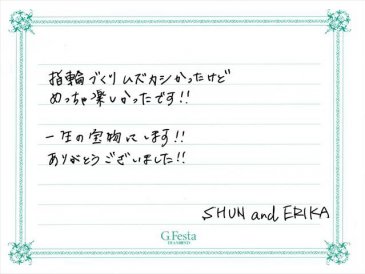 指輪づくりムズカシかったけど
めっちゃ楽しかったです!!
一生の宝物にします!!
ありがとうございました!!
SHUN and ERIKA
G.Festa